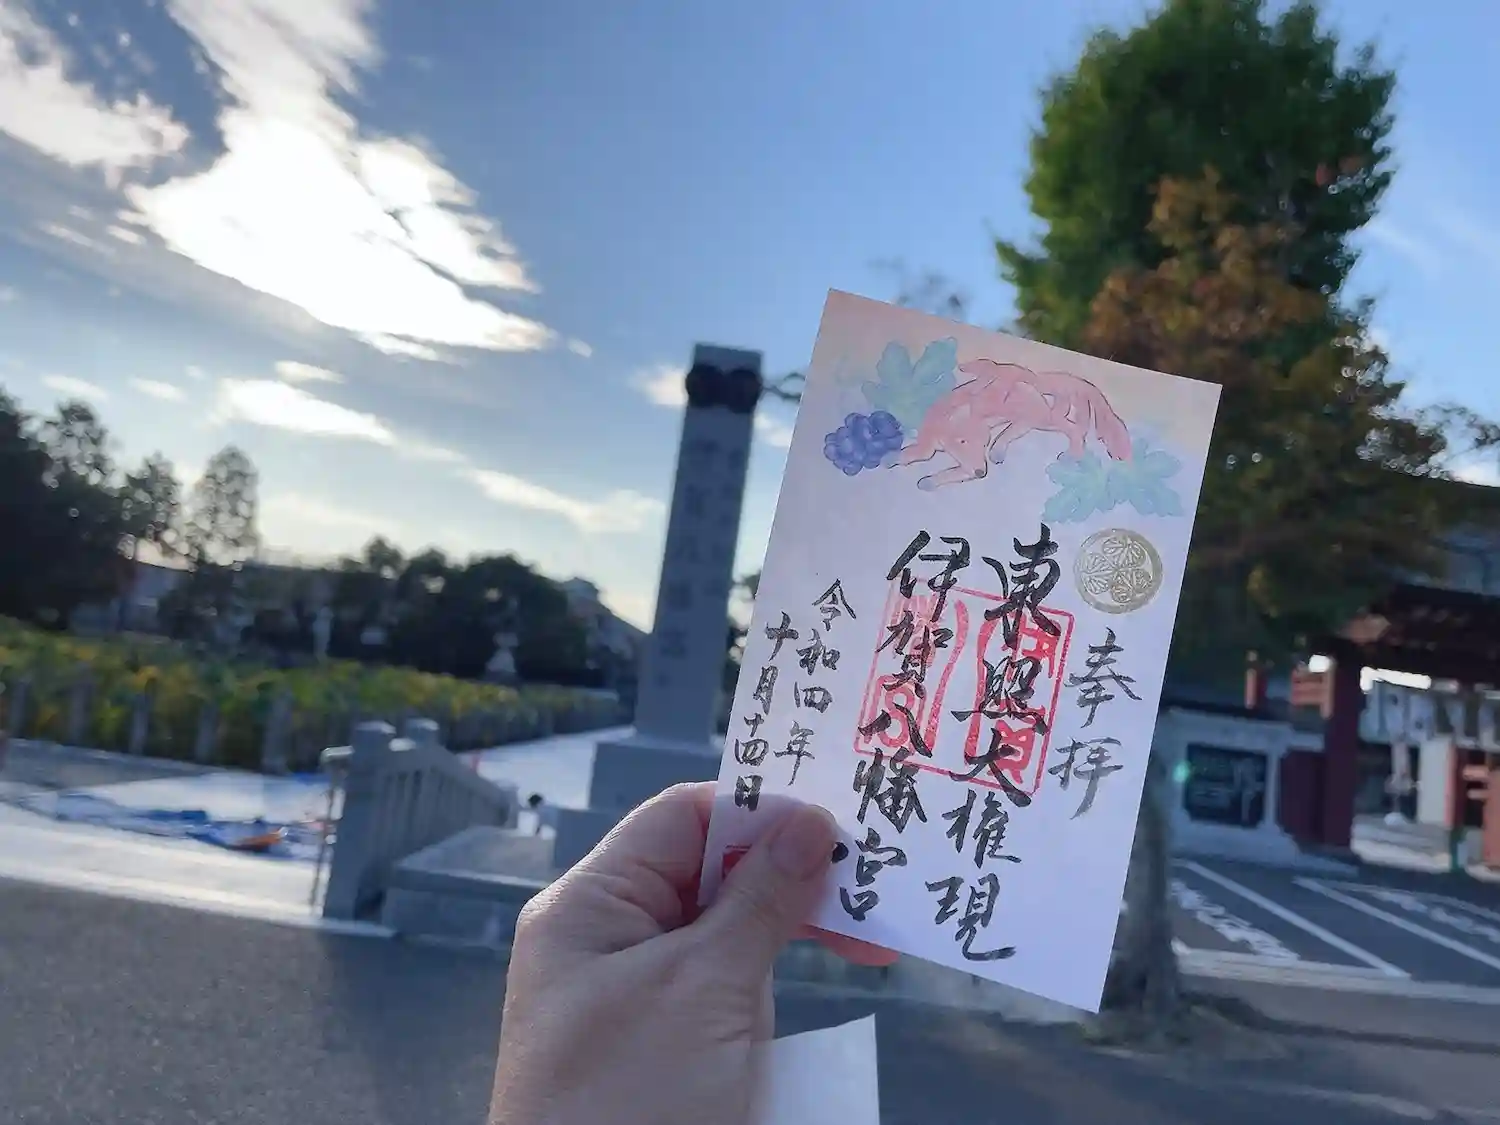 奉拝
東照大権現
伊賀八幡宮
令和四年
十月十四日